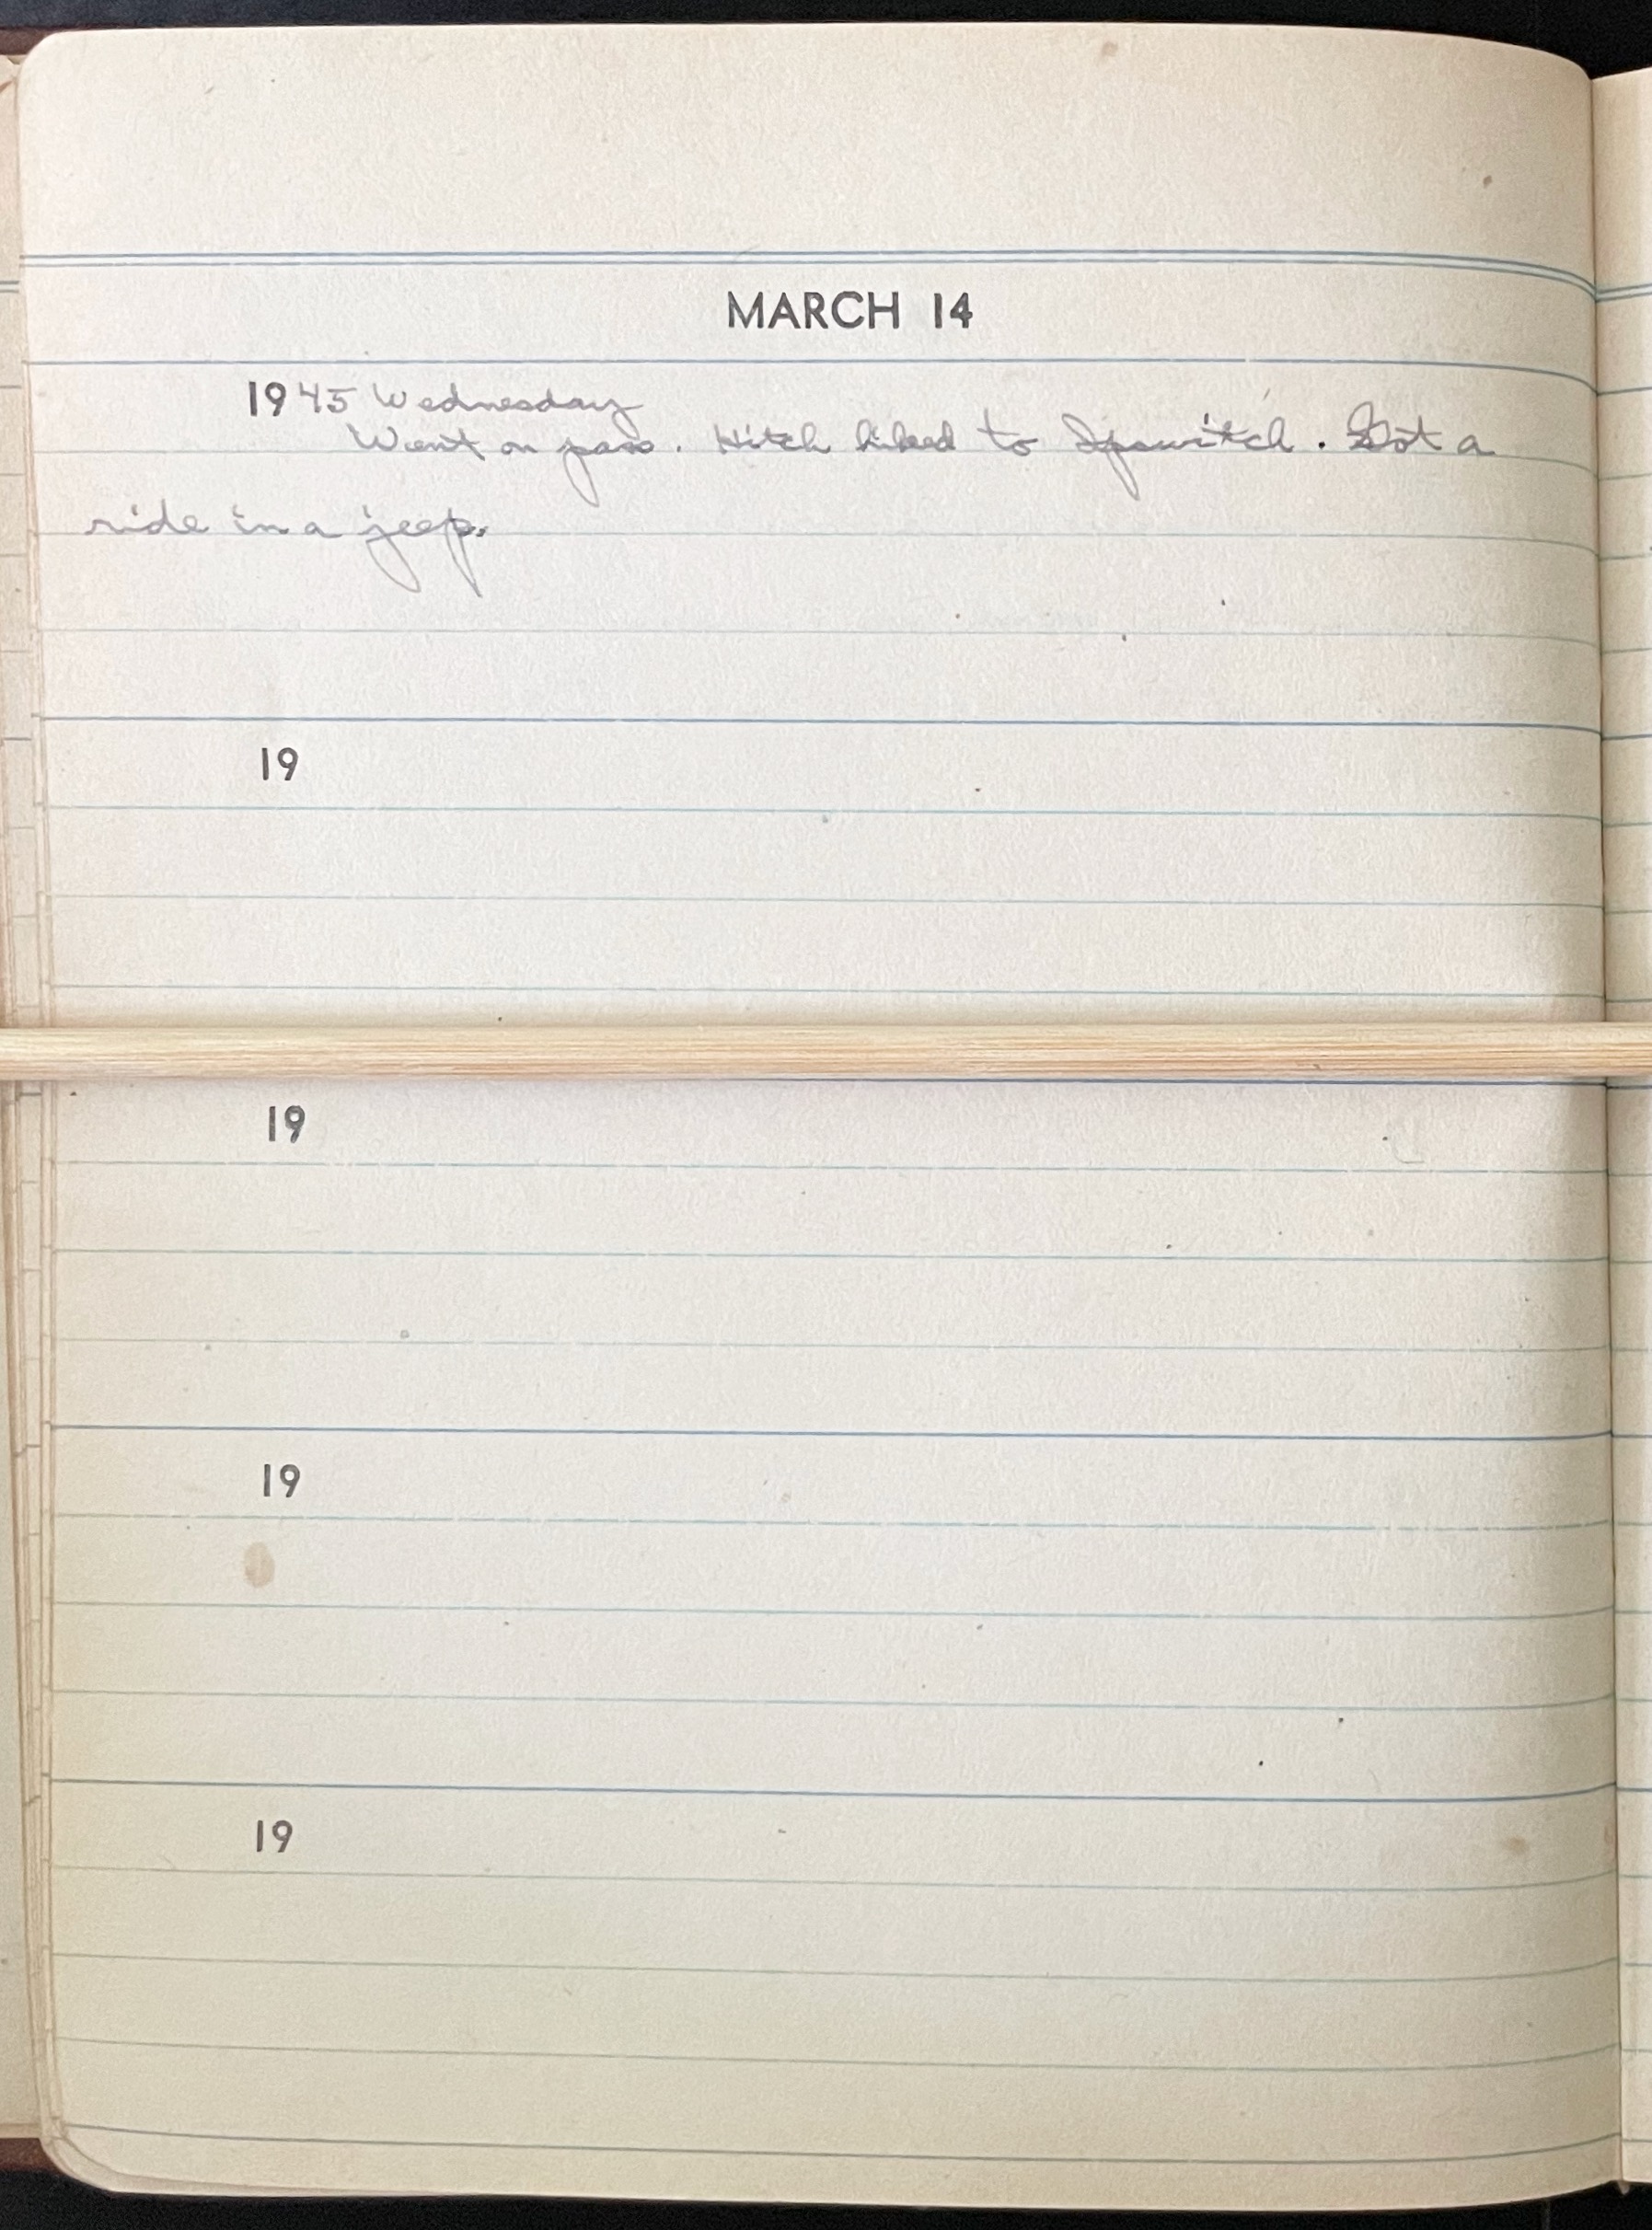 MARCH 14
1945 Wednesday
Went on pass. Hitch hiked to Ipswitch. Got a
ride in a jeep.
19
19
19
19